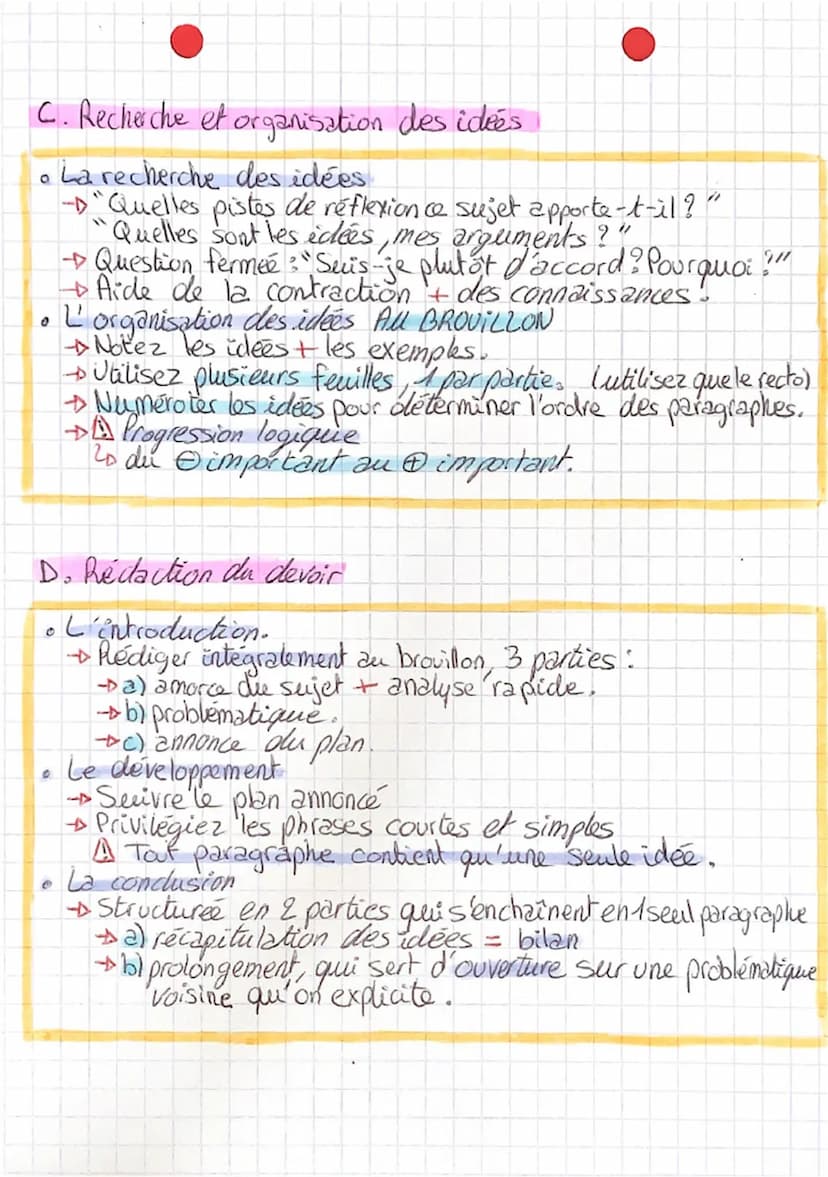 C. Recherche et organisation des idées
• La recherche des idées
→ "Quelles pistes de réflexion ce sujet apporte-t-il ? "
"Quelles sont les idées, mes arguments ? "
→ Question fermeé : "Suis-je plutôt d'accord ? Pourquoi ?"
→ Aide de la contraction + des connaissances.
• L'organisation des idées AU BROUILLON
→ Notez les idées + les exemples.
→ Utilisez plusieurs feuilles, 1 par partie. (utilisez que le recto)
→ Numéroter les idées pour déterminer l'ordre des paragraphes.
→ ⚠ Progression logique
↳ du ⊖ important au ⊕ important.
D. Rédaction du devoir
• L'introduction.
→ Rédiger intégralement au brouillon, 3 parties :
→ a) amorce du sujet + analyse rapide.
→ b) problématique.
→ c) annonce du plan.
• Le développement
→ Suivre le plan annoncé
→ Privilégiez les phrases courtes et simples
⚠ Tout paragraphe contient qu'une seule idée.
• La conclusion
→ Structureé en 2 parties qui s'enchaînent en 1 seul paragraphe
→ a) récapitulation des idées = bilan
→ b) prolongement, qui sert d'ouverture sur une problématique
voisine qu'on explicite.